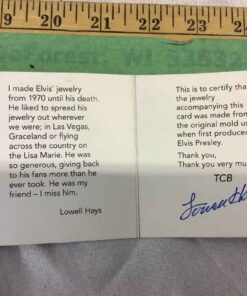 17 18 19 20 21 22
I made Elvis' jewelry
from 1970 until his death.
He liked to spread his
jewelry out wherever
we were; in Las Vegas,
Graceland or flying
across the country on
the Lisa Marie. He was
so generous, giving back
to his fans more than he
ever took. He was my
friend – I miss him.
Lowell Hays
This is to certify tha
the jewelry
accompanying this
card was made from
the original mold u
when first produce
Elvis Presley.
Thank you,
Thank you very mu
TCB